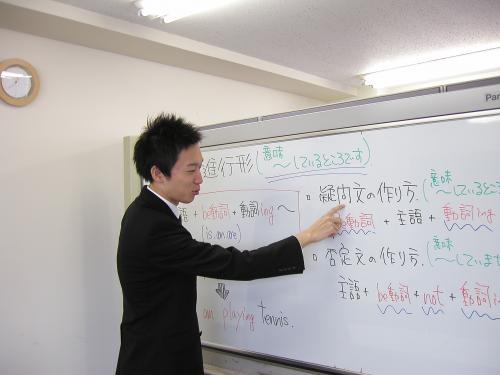 Pan
進行形(意味 〜しているところです)
語 + be動詞 + 動詞ing 〜
(is, am, are)
am playing tennis.
疑問文の作り方.(意味 〜しているところ
be動詞 + 主語 + 動詞ing
否定文の作り方.(意味 〜していませ
主語 + be動詞 + not + 動詞i